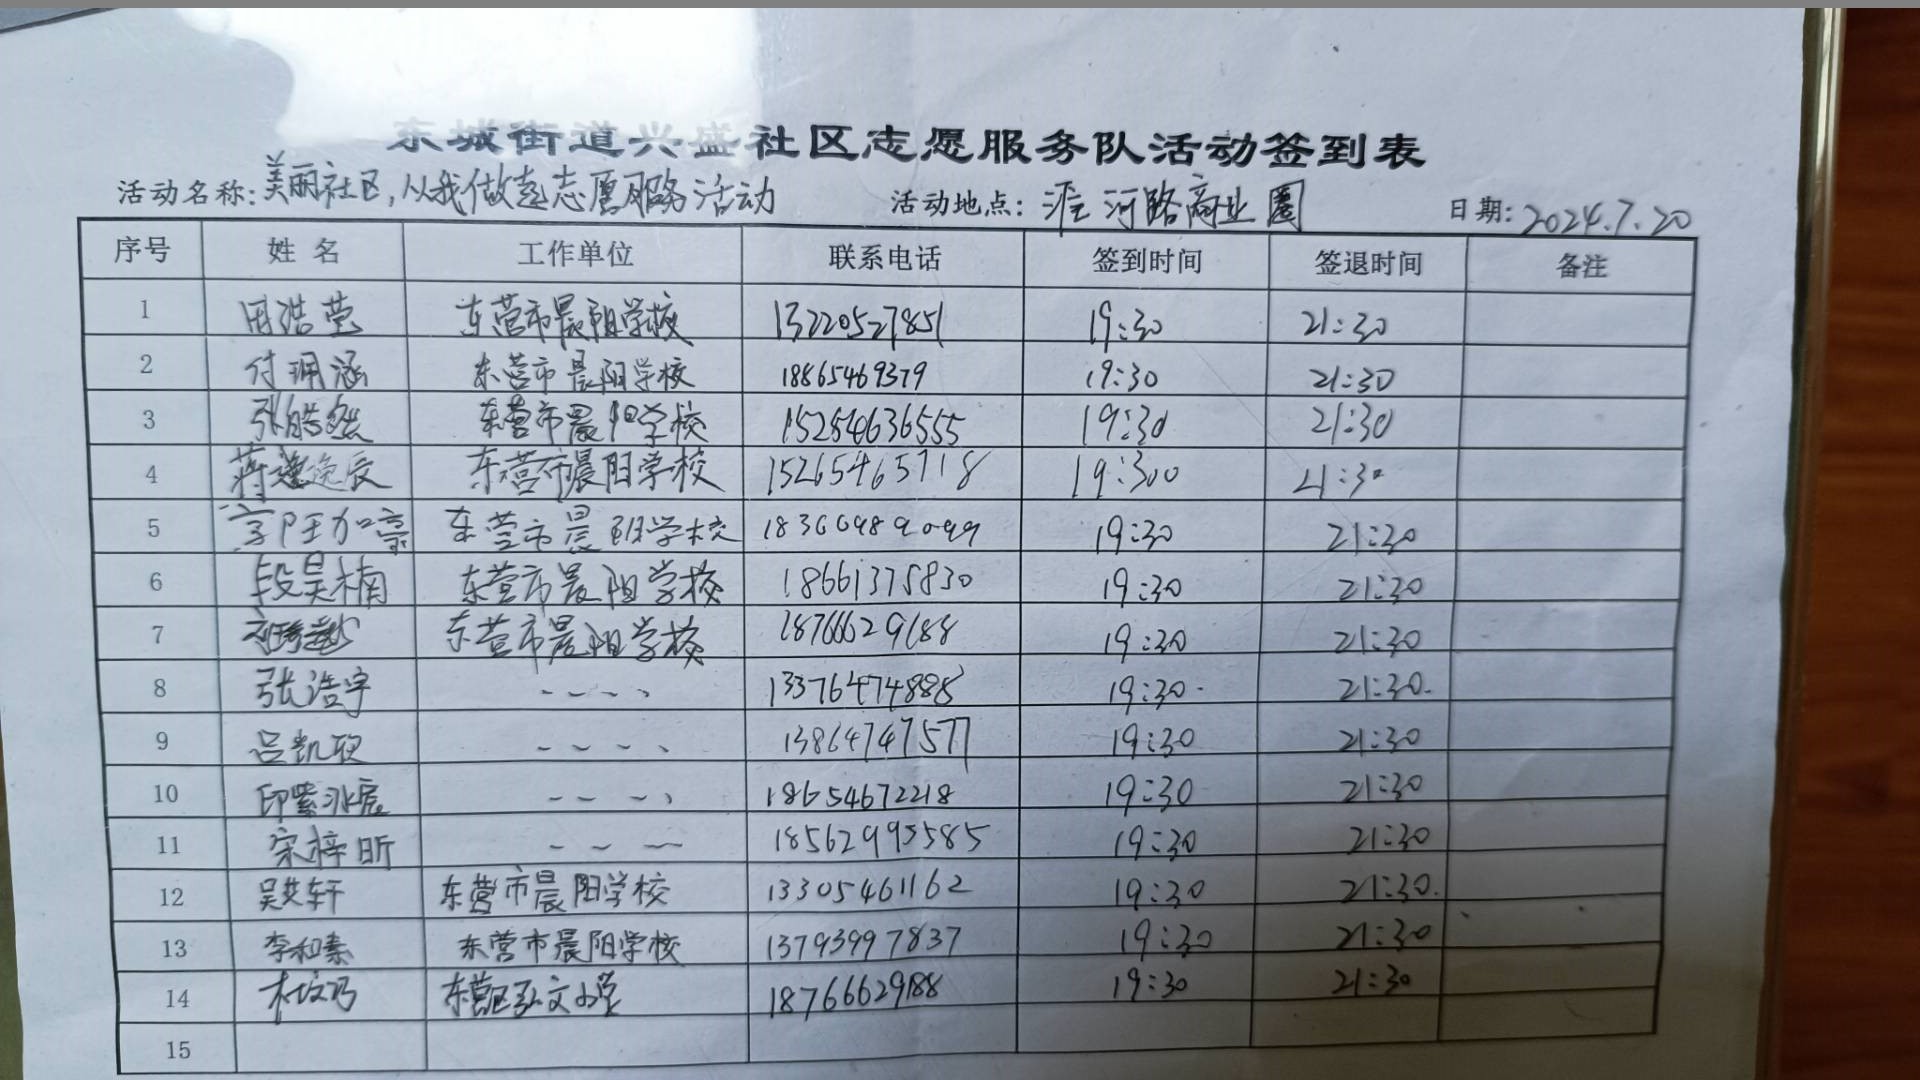 东城街道兴盛社区志愿服务队活动签到表
活动名称:美丽社区,从我做起志愿服务活动 活动地点:淮河路商业圈 日期:2024.7.20
序号 姓名 工作单位 联系电话 签到时间 签退时间 备注
1 周浩莹 东营市晨阳学校 13220527851 19:30 21:30
2 付珮涵 东营市晨阳学校 18865469379 19:30 21:30
3 张皓然 东营市晨阳学校 19:30 21:30
4 东营市晨阳学校 15265465718 19:300 21:30
5 东营市晨阳学校 19:30 21:30
6 段昊楠 东营市晨阳学校 18661375830 19:30 21:30
7 东营市晨阳学校 18766629188 19:30 21:30
8 张浩宇 13376474888 19:30. 21:30.
9 吕凯 13864747577 19:30 21:30
10 印紫 18654672218 19:30 21:30
11 宋梓昕 18562993585 19:30 21:30
12 吴 轩 东营市晨阳学校 13305461162 19:30 21:30.
13 李和 东营市晨阳学校 13793997837 19:30 21:30
14 东营区弘文小学 18766629188 19:30 21:30
15